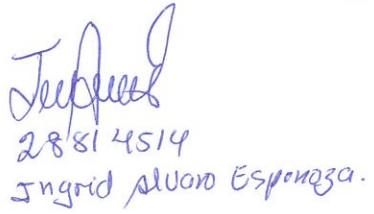 28814514
Ingrid Alvaro Espinoza.